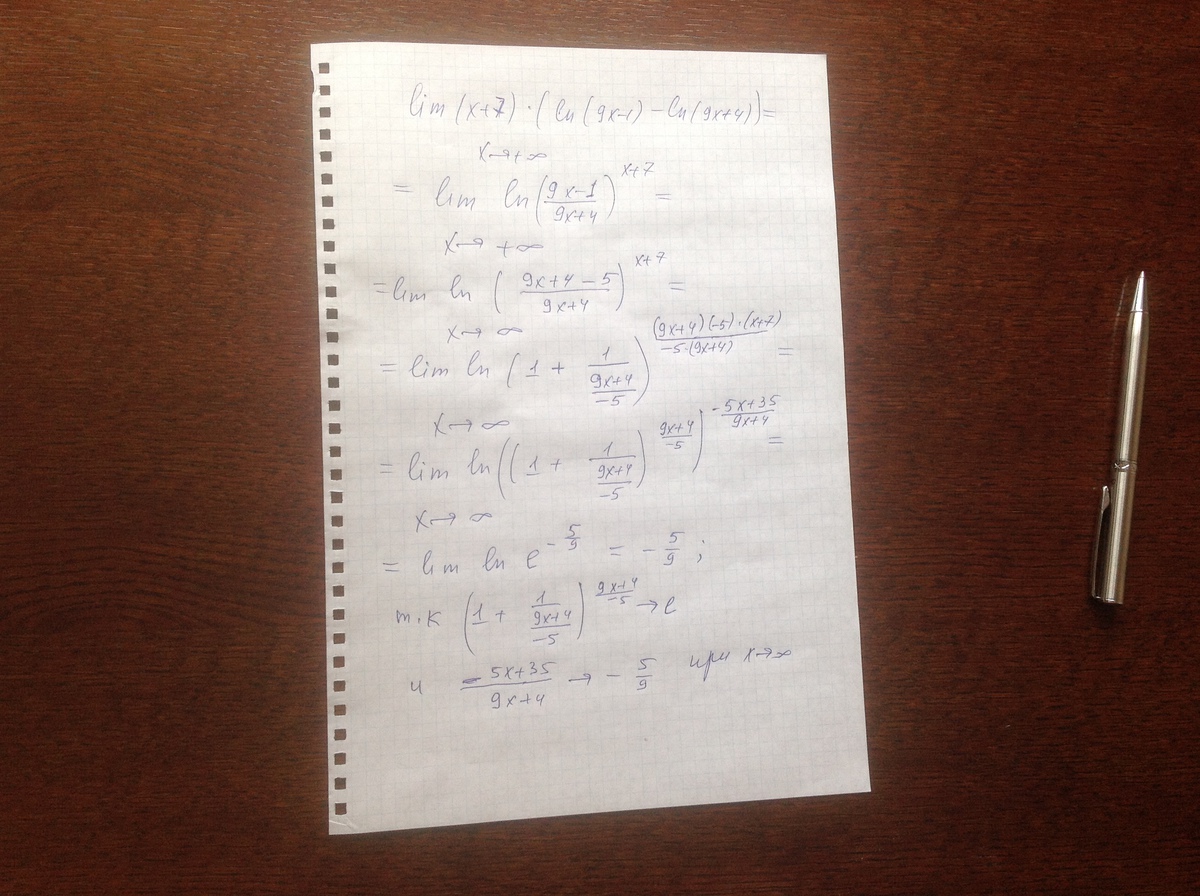 lim (x+7) · (ln(9x-1) - ln(9x+4)) =
x→+∞
= lim ln((9x-1)/(9x+4))^(x+7) =
x→ +∞
= lim ln ((9x+4-5)/(9x+4))^(x+7) =
x→ ∞
= lim ln (1 + 1/((9x+4)/(-5)))^((9x+4)(-5)·(x+7)/(-5·(9x+4))) =
x→ ∞
= lim ln((1 + 1/((9x+4)/(-5)))^((9x+4)/(-5)))^(-(5x+35)/(9x+4)) =
x→ ∞
= lim ln e^(-5/9) = -5/9 ;
т.к (1 + 1/((9x+4)/(-5)))^((9x+4)/(-5)) → e
и -(5x+35)/(9x+4) → -5/9 при x→∞